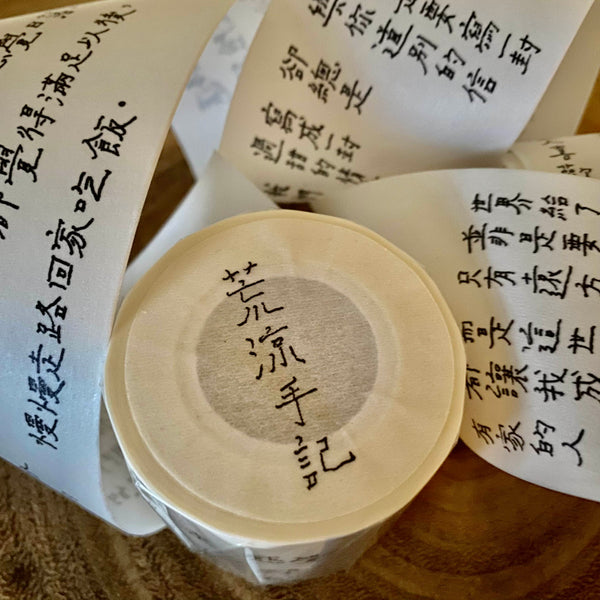 荒涼手記
覺得滿足以後，
慢慢走路回家吃飯。
要寫一封
你道別的信
卻總是
寫成一封
過詩的情
世界給了
並非是要
只有遠方
而是這世
都讓我成
有家的人